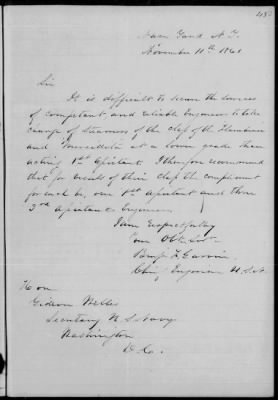 Navy Yard N.Y.
November 11th 186
Sir
It is difficult to secure the services
of competent and reliable Engineers to take
charge of steamers of the class of the Flambeau
and at a lower grade than
acting 1st Assistant I therefore recommend
that for vessels of this class the compliment
for each be, one 1st Assistant and three
3rd Assistant Engineers
I am respectfully
Your Obt Svt
Benj F Garvin
Chief Engineer U.S.N.
Hon
Gideon Welles
Secretary U.S. Navy
Washington
D.C.